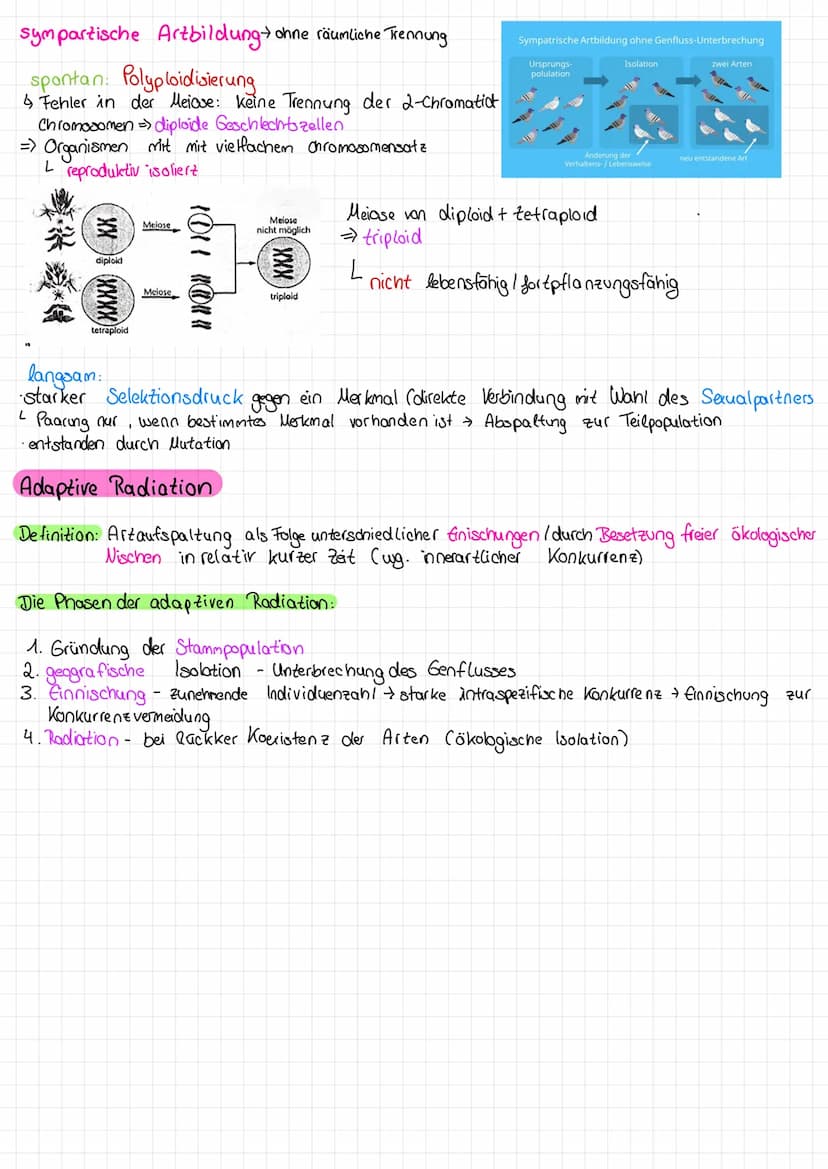 sympartische Artbildung → ohne räumliche Trennung
Sympatrische Artbildung ohne Genfluss-Unterbrechung
Ursprungs-
polulation
Isolation
zwei Arten
Änderung der
Verhaltens- / Lebensweise
neu entstandene Art
spontan: Polyploidisierung
↳ Fehler in der Meiose: keine Trennung der 2-Chromatid
Chromosomen ⇒ diploide Geschlechtszellen
⇒ Organismen mit mit vielfachem Chromosomensatz
↳ reproduktiv isoliert
Meiose
diploid
Meiose
tetraploid
Meiose
nicht möglich
triploid
Meiose von diploid + tetraploid
⇒ triploid
↳ nicht lebensfähig / fortpflanzungsfähig
langsam:
· starker Selektionsdruck gegen ein Merkmal (direkte Verbindung mit Wahl des Sexualpartners
↳ Paarung nur, wenn bestimmtes Merkmal vorhanden ist → Abspaltung zur Teilpopulation
· entstanden durch Mutation
Adaptive Radiation
Definition: Artaufspaltung als Folge unterschiedlicher Einischungen / durch Besetzung freier ökologischer
Nischen in relativ kurzer Zeit (wg. innerartlicher Konkurrenz)
Die Phasen der adaptiven Radiation:
1. Gründung der Stammpopulation
2. geografische Isolation - Unterbrechung des Genflusses
3. Einnischung - zunehmende Individuenzahl → starke intraspezifische Konkurrenz → Einnischung zur
Konkurrenzvermeidung
4. Radiation - bei Rückker Koexistenz der Arten (ökologische Isolation)